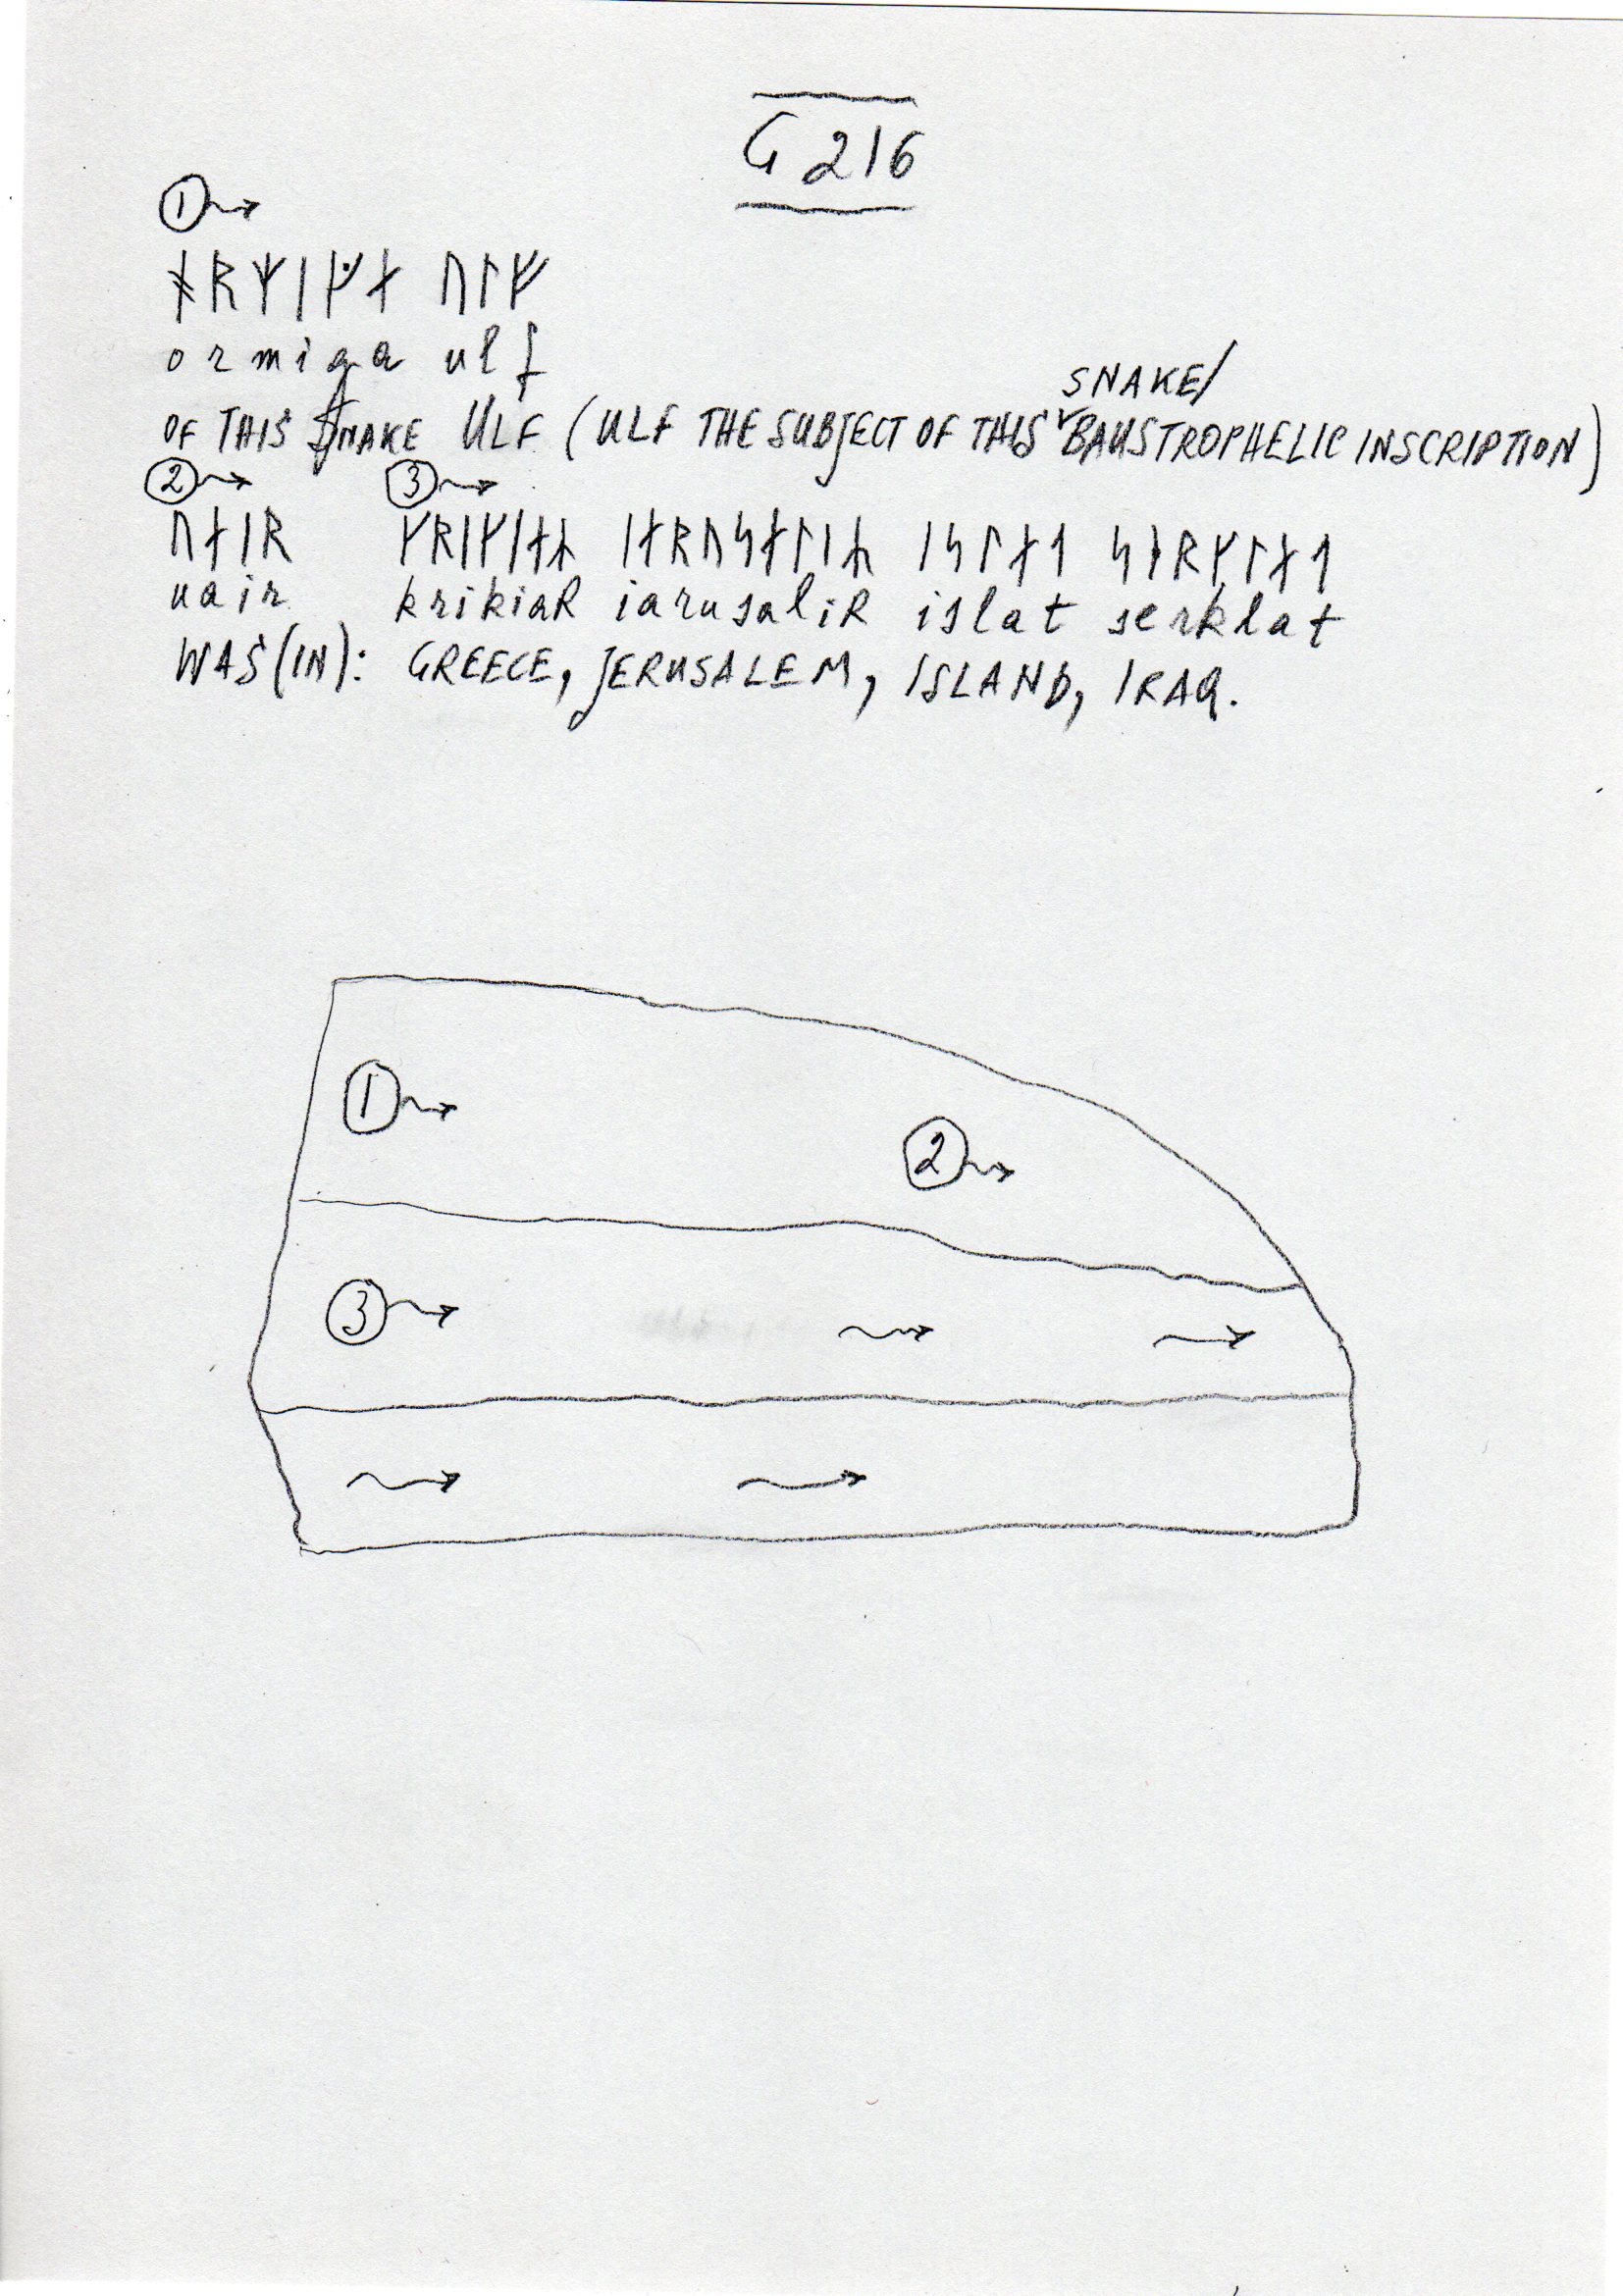 G 216
①
ᚬᚱᛘᛁᚵᛅ ᚢᛚᚠ
ormiga ulf
SNAKE/
OF THIS SNAKE ULF (ULF THE SUBJECT OF THIS BAUSTROPHELIC INSCRIPTION)
② ③
ᚢᛅᛁᚱ ᚴᚱᛁᚴᛁᛅᛦ ᛁᛅᚱᚢᛋᛅᛚᛁᛦ ᛁᛋᛚᛅᛏ ᛋᚽᚱᚴᛚᛅᛏ
uair krikiaR iarusaliR islat serklat
WAS (IN): GREECE, JERUSALEM, ISLAND, IRAQ.
①
②
③